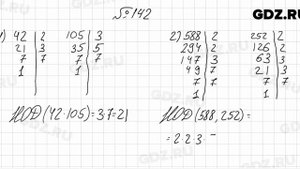 № 142
GDZ.RU
1) 42 | 2 105 | 3 2) 588 | 2 252 | 2
21 | 3 35 | 5 294 | 2 126 | 2
7 | 7 7 | 7 147 | 3 63 | 3
1 | 1 | 49 | 7 21 | 3
7 | 7 7 | 7
1 | 1 |
НОД (42·105) = 3·7 = 21 НОД (588, 252) =
= 2·2·3